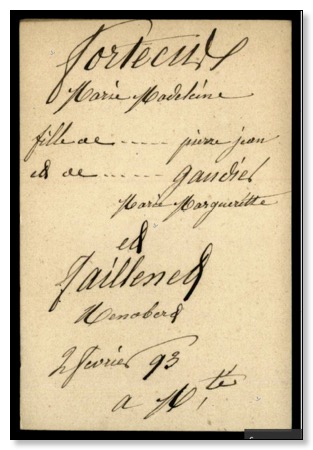 Porteux
Marie Madeleine
fille de ------ pierre jean
et de ------ gaudier
Marie Margueritte
et
Taillened
Renobert
2 fevrier 93
a M,té